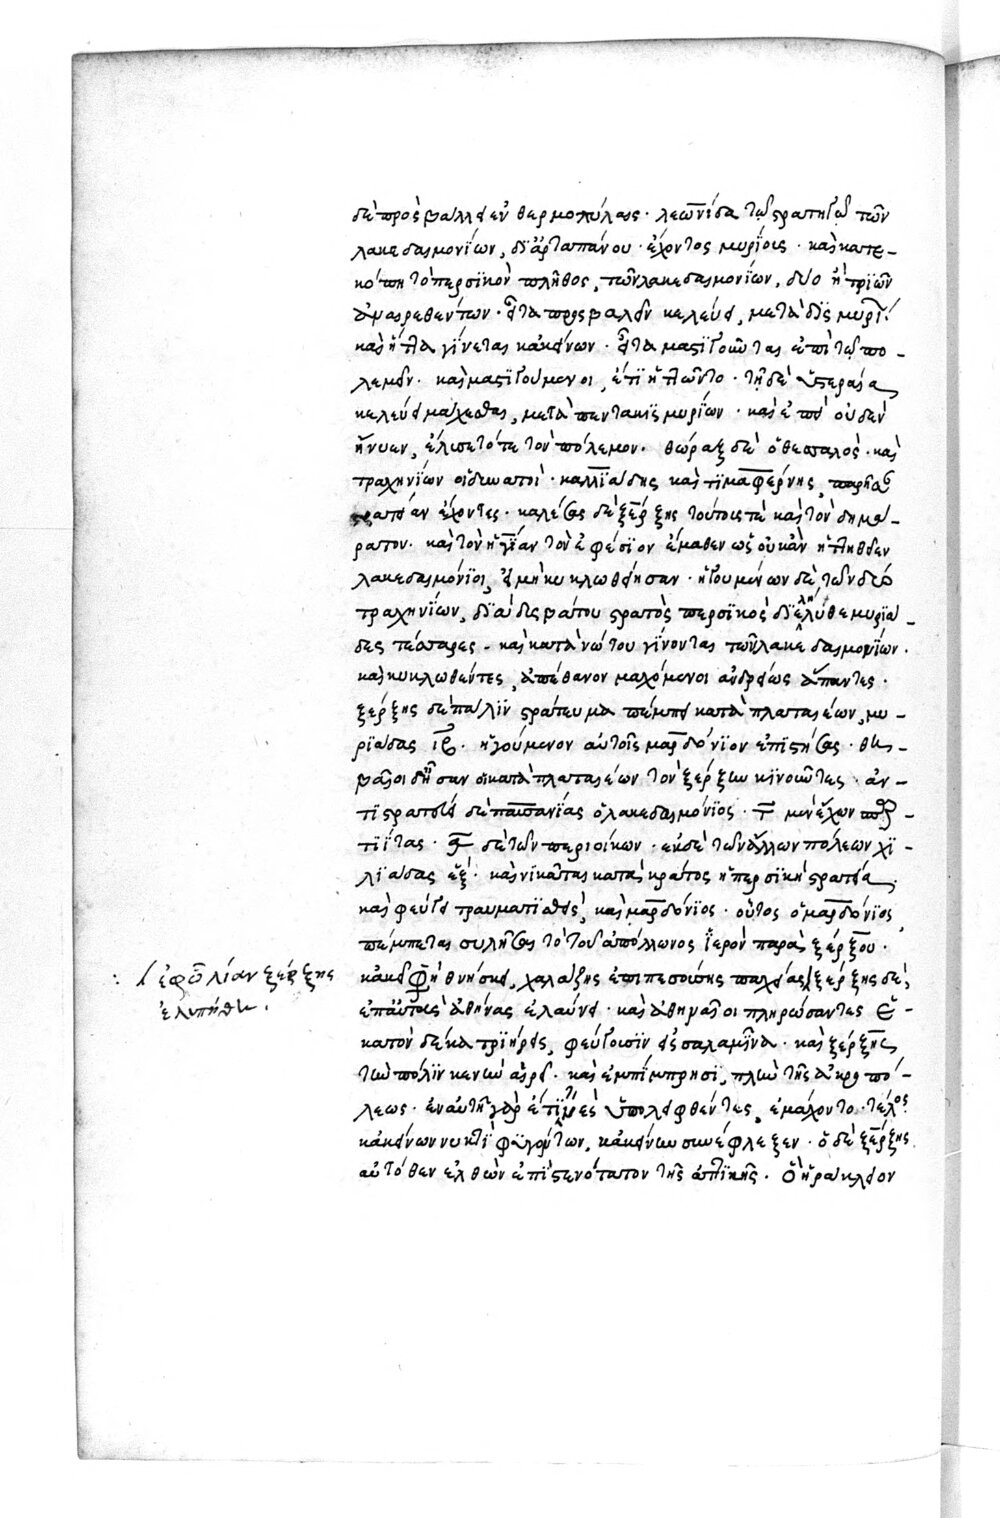 δὲ προσβάλλειν θερμοπύλαις· λεωνίδα τῶ στρατηγῶ τῶν
λακεδαιμονίων, δι' ἀρταπάνου· ἔχοντος μυρίους· καὶ κατε-
κόπη τὸ περσικὸν πλῆθος, τῶν λακεδαιμονίων, δύο ἢ τριῶν
ἀναιρεθέντων· εἶτα προσβαλεῖν κελεύει, μετὰ δὶς μυρί(ων)
καὶ ἧττα γίνεται κἀκείνων· εἶτα μαστιγοῦνται ἐπὶ τῶ πο-
λεμεῖν· καὶ μαστιγούμενοι, ἔτι ἡττῶντο· τῆ δὲ ὑστεραία
κελεύει μάχεσθαι, μετὰ πεντακὶς μυρίων· καὶ ἐπεὶ οὐδὲν
ἤνυεν, ἔλιπε τότε τὸν πόλεμον· θώραξ δὲ ὁ θεσσαλὸς· καὶ
τραχηνίων οἱ δυνατοὶ· καλλιάδης καὶ τιμαφέρνης, παρῆσαν
στρατείαν ἔχοντες· καλέσας δὲ ξέρξης τούτους τὲ καὶ τὸν δημά-
ρατον· καὶ τὸν ἡγίαν τὸν ἐφέσιον ἔμαθεν ὡς οὐκ ἂν ἡττηθεῖεν
λακεδαιμόνιοι, εἰ μὴ κυκλωθείησαν· ἡγουμένων δὲ τῶν δύο
τραχηνίων, διὰ δυσβάτου στρατὸς περσικὸς διελήλυθε μυριά-
δες τέσσαρες· καὶ κατὰ νώτου γίνονται τῶν λακεδαιμονίων·
καὶ κυκλωθέντες, ἀπέθανον μαχόμενοι ἀνδρείως ἅπαντες·
ξέρξης δὲ πάλιν στράτευμα πέμπει κατὰ πλαταιέων, μυ-
ριάδας ιβ· ἡγούμενον αὐτοῖς μαρδόνιον ἐπιστήσας· θη-
βαῖοι δὲ ἦσαν οἱ κατὰ πλαταιέων τὸν ξέρξην κινοῦντες· ἀν-
τιστρατεύει δὲ παυσανίας ὁ λακεδαιμόνιος· τ μὲν ἔχων σπαρ-
τιάτας· δὲ τῶν περιοίκων· ἐκ δὲ τῶν ἄλλων πόλεων χι-
λιάδας ἕξ· καὶ νικᾶται κατὰ κράτος ἡ περσικὴ στρατεία,
καὶ φεύγει τραυματισθεὶς, καὶ μαρδόνιος· οὗτος ὁ μαρδόνιος,
πέμπεται συλῆσαι τὸ τοῦ ἀπόλλωνος ἱερὸν παρὰ ξέρξου·
κἀκεῖ φασὶ θνήσκει, χαλάζης ἐπιπεσούσης παχείας· ξέρξης δὲ,
ἐπ' αὐτὰς ἀθήνας ἐλαύνει· καὶ ἀθηναῖοι πληρώσαντες ἑ-
κατὸν δέκα τριήρεις, φεύγουσιν εἰς σαλαμῖνα· καὶ ξέρξης
τὴν πόλιν κενὴν αἱρεῖ· καὶ ἐμπίμπρησι, πλὴν τῆς ἀκροπό-
λεως· ἐν αὐτῆ γὰρ ἔτι τινὲς ὑπολειφθέντες, ἐμάχοντο· τέλος
κἀκείνων νυκτὶ φυγόντων, κἀκείνην συνέφλεξεν· ὁ δὲ ξέρξης
αὐτόθεν ἐλθὼν ἐπὶ στενότατον τῆς ἀττικῆς· ὃ ἡράκλειον